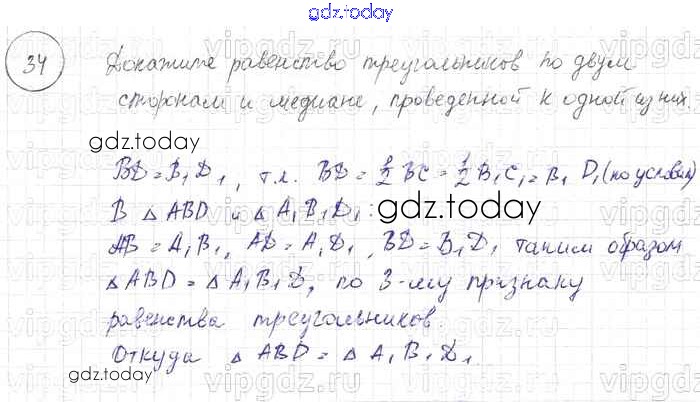 gdz.today
34 Докажите равенство треугольников по двум
сторонам и медиане, проведенной к одной из них.
gdz.today
BD = B₁D₁, т.к. BD = 1/2 BC = 1/2 B₁C₁ = B₁D₁ (по условию)
В △ABD и △A₁B₁D₁:
gdz.today
AB = A₁B₁, AD = A₁D₁, BD = B₁D₁ таким образом
△ABD = △A₁B₁D₁ по 3-му признаку
равенства треугольников.
Откуда △ABD = △A₁B₁D₁.
gdz.today